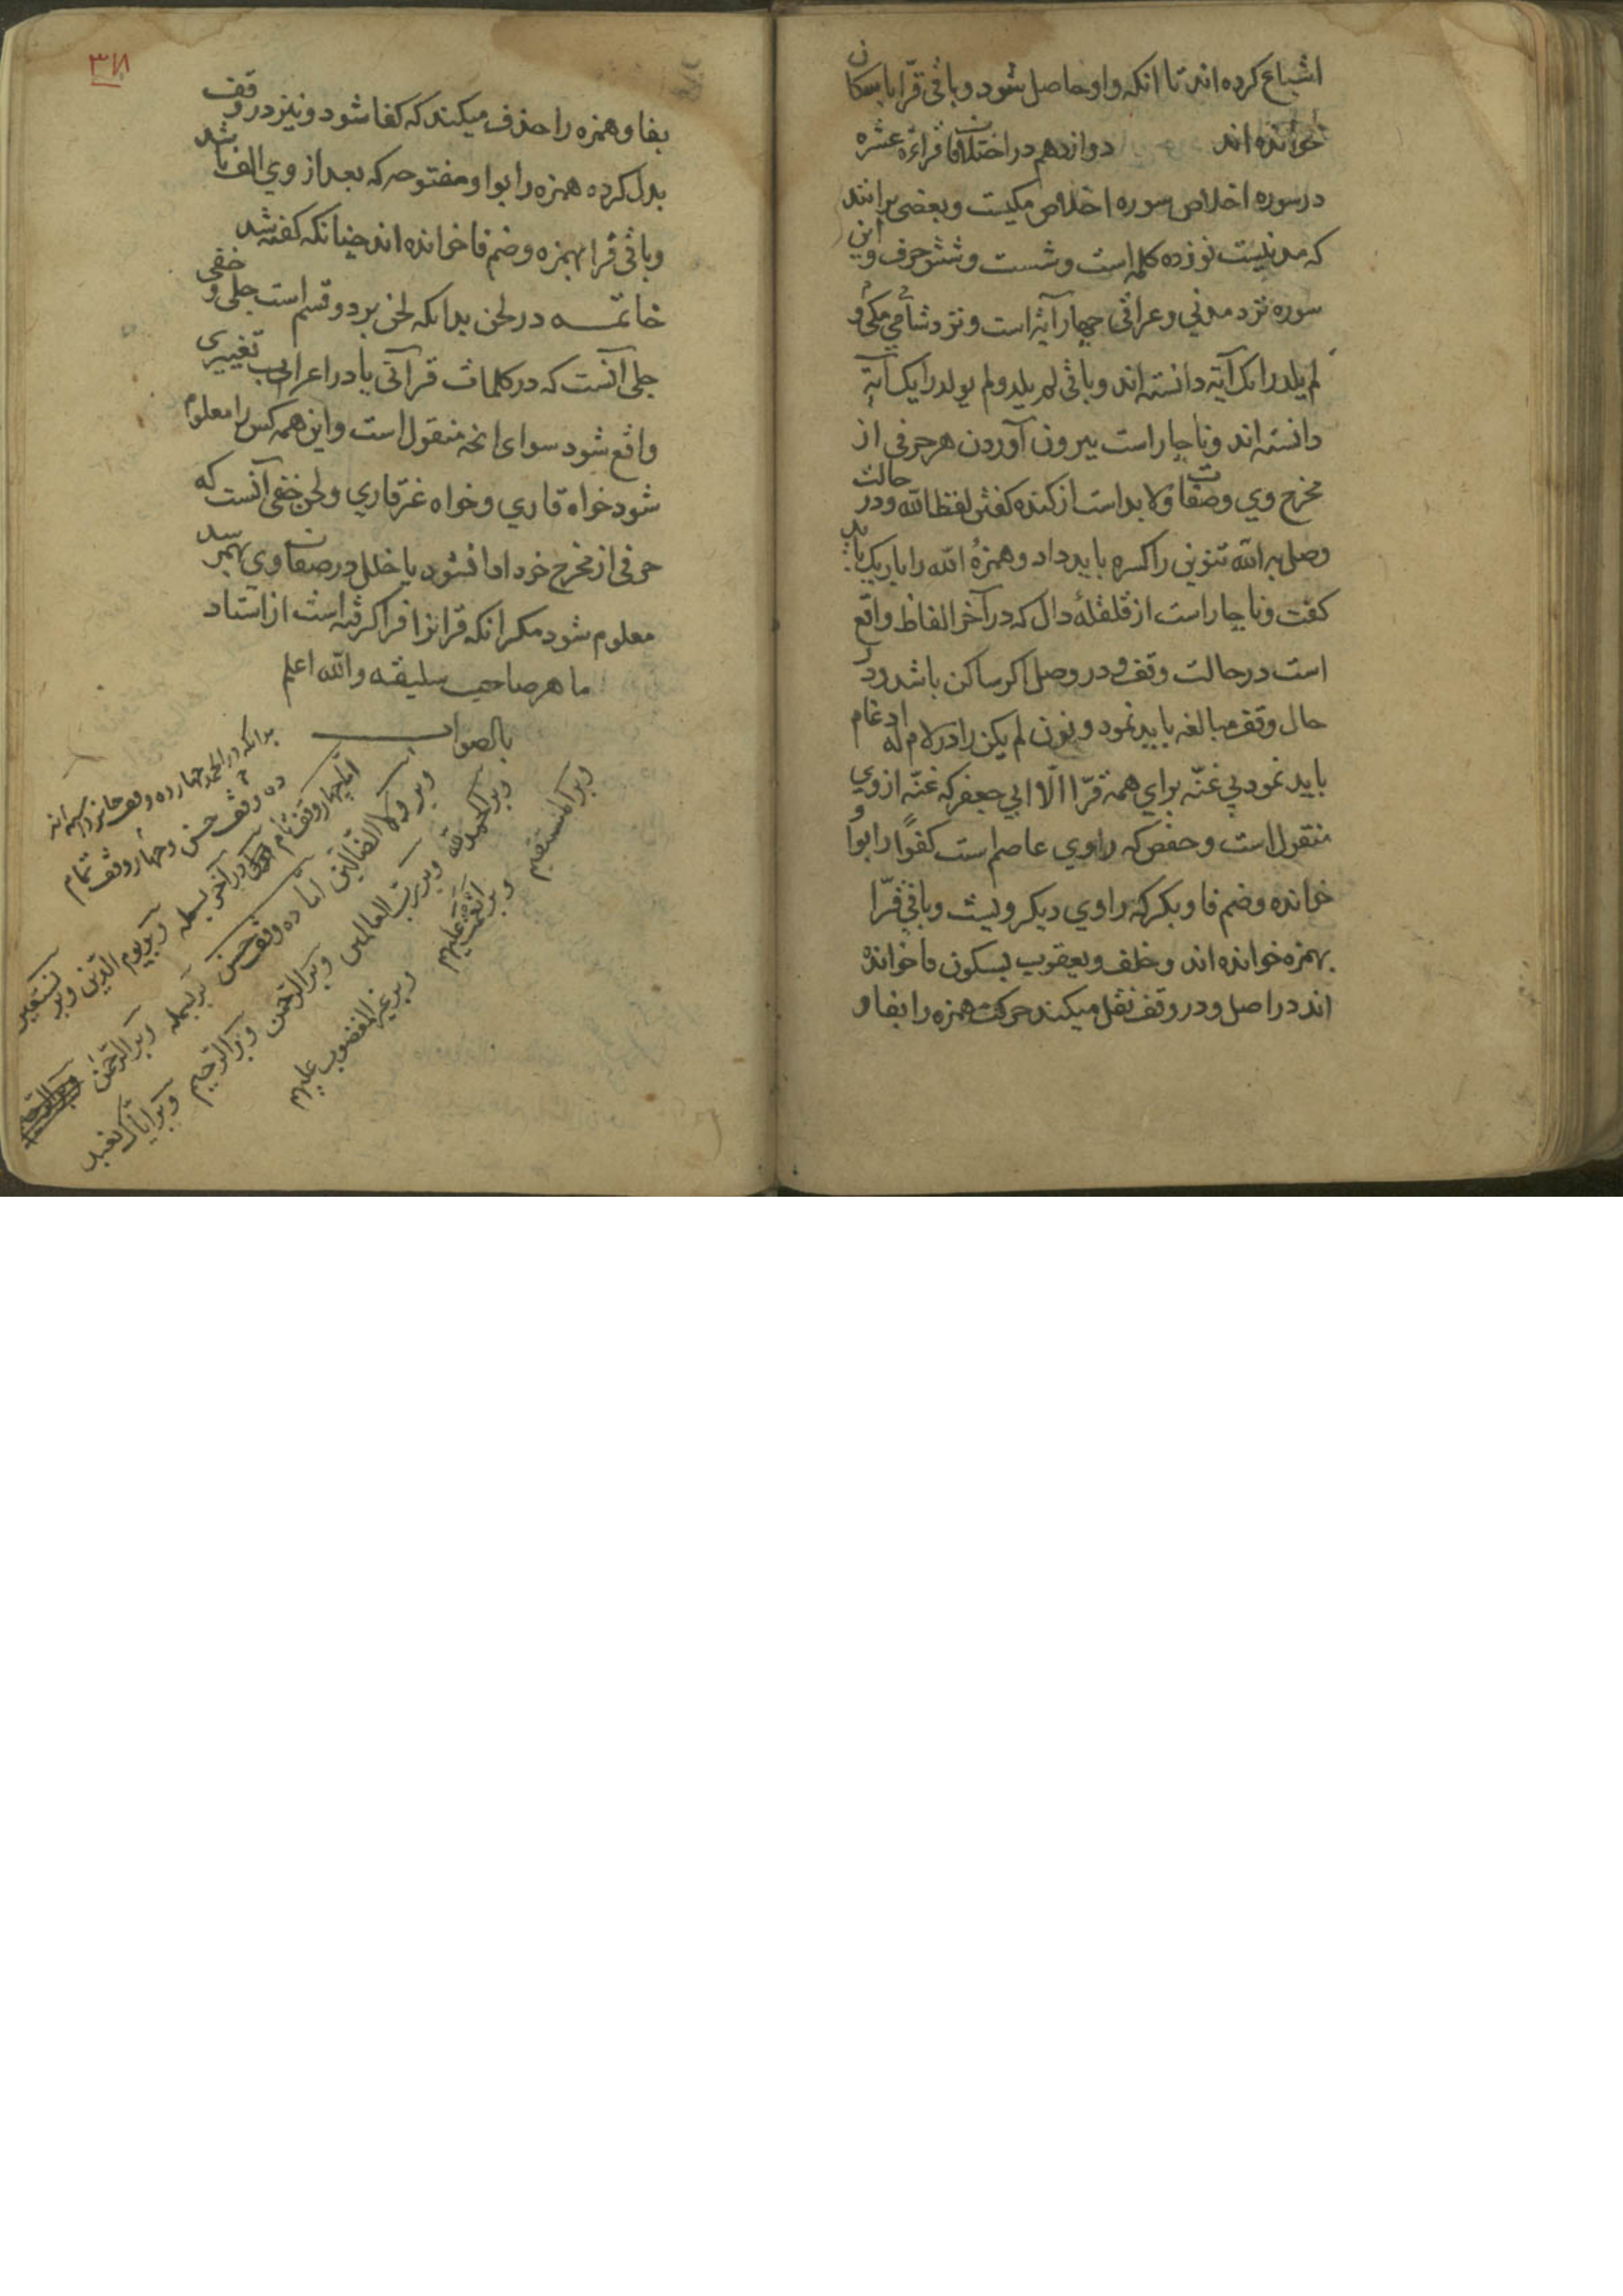 اشباع کرده اند تا انکه واو حاصل شود و باقی قرّا باسکان
خوانده اند دوازدهم در اختلافات قراءة عشره
در سوره اخلاص سوره اخلاص مکیست و بعضی برانند
که مدنیست نوزده کلمه است و شست و شش حرف و این
سوره نزد مدنی و عراقی چهار آیة است و نزد شامی و مکی
لم یلد را یک آیة دانسته اند و باقی لم یلد و لم یولد را یک آیة
دانسته اند و ناچار است بیرون آوردن هر حرفی از
مخرج وی و صفات و لا بد است از کنده کفتن لفظ الله و در حالت
وصل به الله تنوین را کسره باید داد و همزهٔ الله را باریک باید
کفت و ناچار است از قلقلهٔ دال که در آخر الفاظ واقع
است در حالت وقف و در وصل اکر ساکن باشد و در
حال وقف مبالغه باید نمود و نون لم یکن را در لام له ادغام
باید نمود بی غنّه برای همه قرّا الّا ابی جعفر که غنّه از وی
منقول است و حفص که راوی عاصم است کفوًا را بواو
خوانده و ضم فا و بکر که راوی دیکر ویست و باقی قرّا
بهمزه خوانده اند و خلف و یعقوب بسکون فا خوانده
اند در اصل و در وقف نقل میکند حرکت همزه را بفا و
۳۸
بفا و همزه را حذف میکند که کفا شود و نیز در وقف
بدل کرده همزه را بواو مفتوحه که بعد از وی الف باشد
و باقی قرا بهمزه و ضم فا خوانده اند چنانکه کفته شد
خاتمه در لحن بدانکه لحن بر دو قسم است جلی و خفی
جلی آنست که در کلمات قرآنی یا در اعراب تغییری
واقع شود سوای انچه منقول است و این همه کس را معلوم
شود خواه قاری و خواه غیر قاری و لحن خفی آنست که
حرفی از مخرج خود ادا نشود یا خلل در صفات وی بهم رسد
معلوم شود مکر انکه قرانرا فرا کرفته است از استاد
ماهر صاحب سلیقه و الله اعلم
بالصواب
بدانکه در الحمد چهارده وقف جایز داشته اند
ده وقف حسن و چهار وقف تمام
اما چهار وقف تمام در آخر بسمله و بر یوم الدّین و بر نستعین
و بر و لا الضالّین اما ده وقف حسن بر بسمله و بر الرّحمن
و بر الحمد لله و بر ربّ العالمین و بر الرّحمن و بر الرّحیم و بر ایّاک نعبد
و بر المستقیم و بر انعمت علیهم و بر غیر المغضوب علیهم